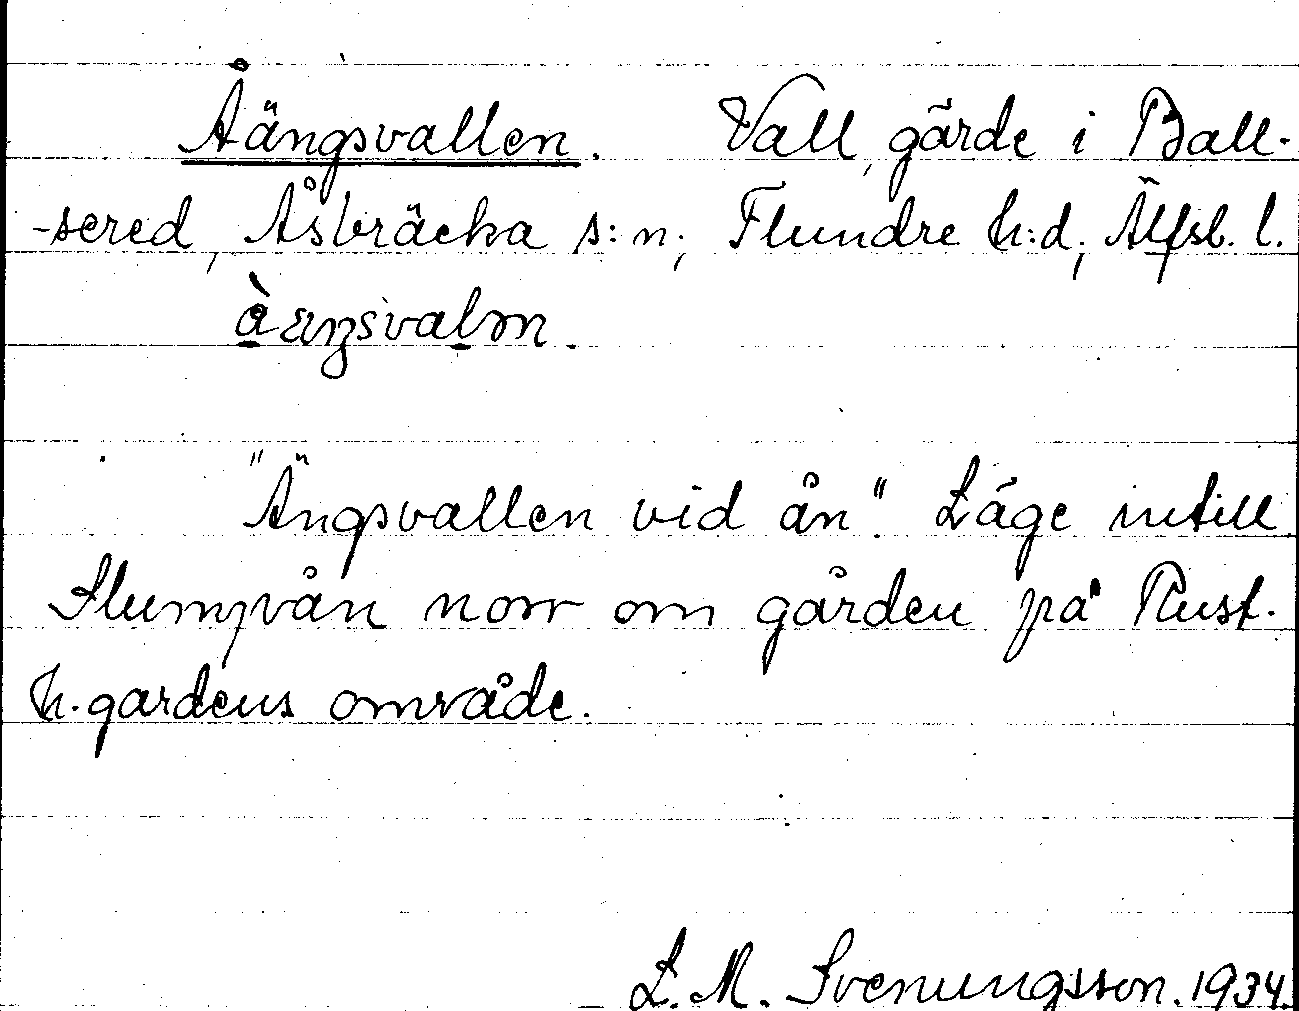 Åängsvallen. Vall, gärde i Ball-
-sered, Åsbräcka s:n, Flundre h:d, Älfsb. l.
"Ängsvallen vid ån". Läge intill
Slumpån norr om gården på Rust-
h.gardens område.
L. M. Svenungsson. 1934.